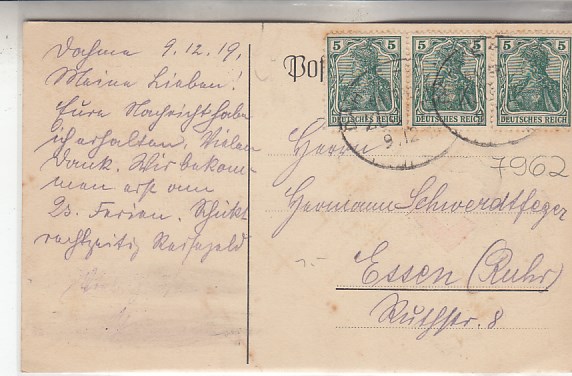 Dahme 9.12.19,
Meine Lieben!
Eure Nachricht habe
ich erhalten. Vielen
Dank. Wir bekom-
men erst am
23. Ferien. Schickt
rechtzeitig Reisegeld
Pos
5 5 5 5 5
DEUTSCHES REICH DEUTSCHES REICH DEUTSCHES REICH
9.12
Herrn
7962
Hermann Schwerdtfeger
Essen (Ruhr)
Ruthstr. 8